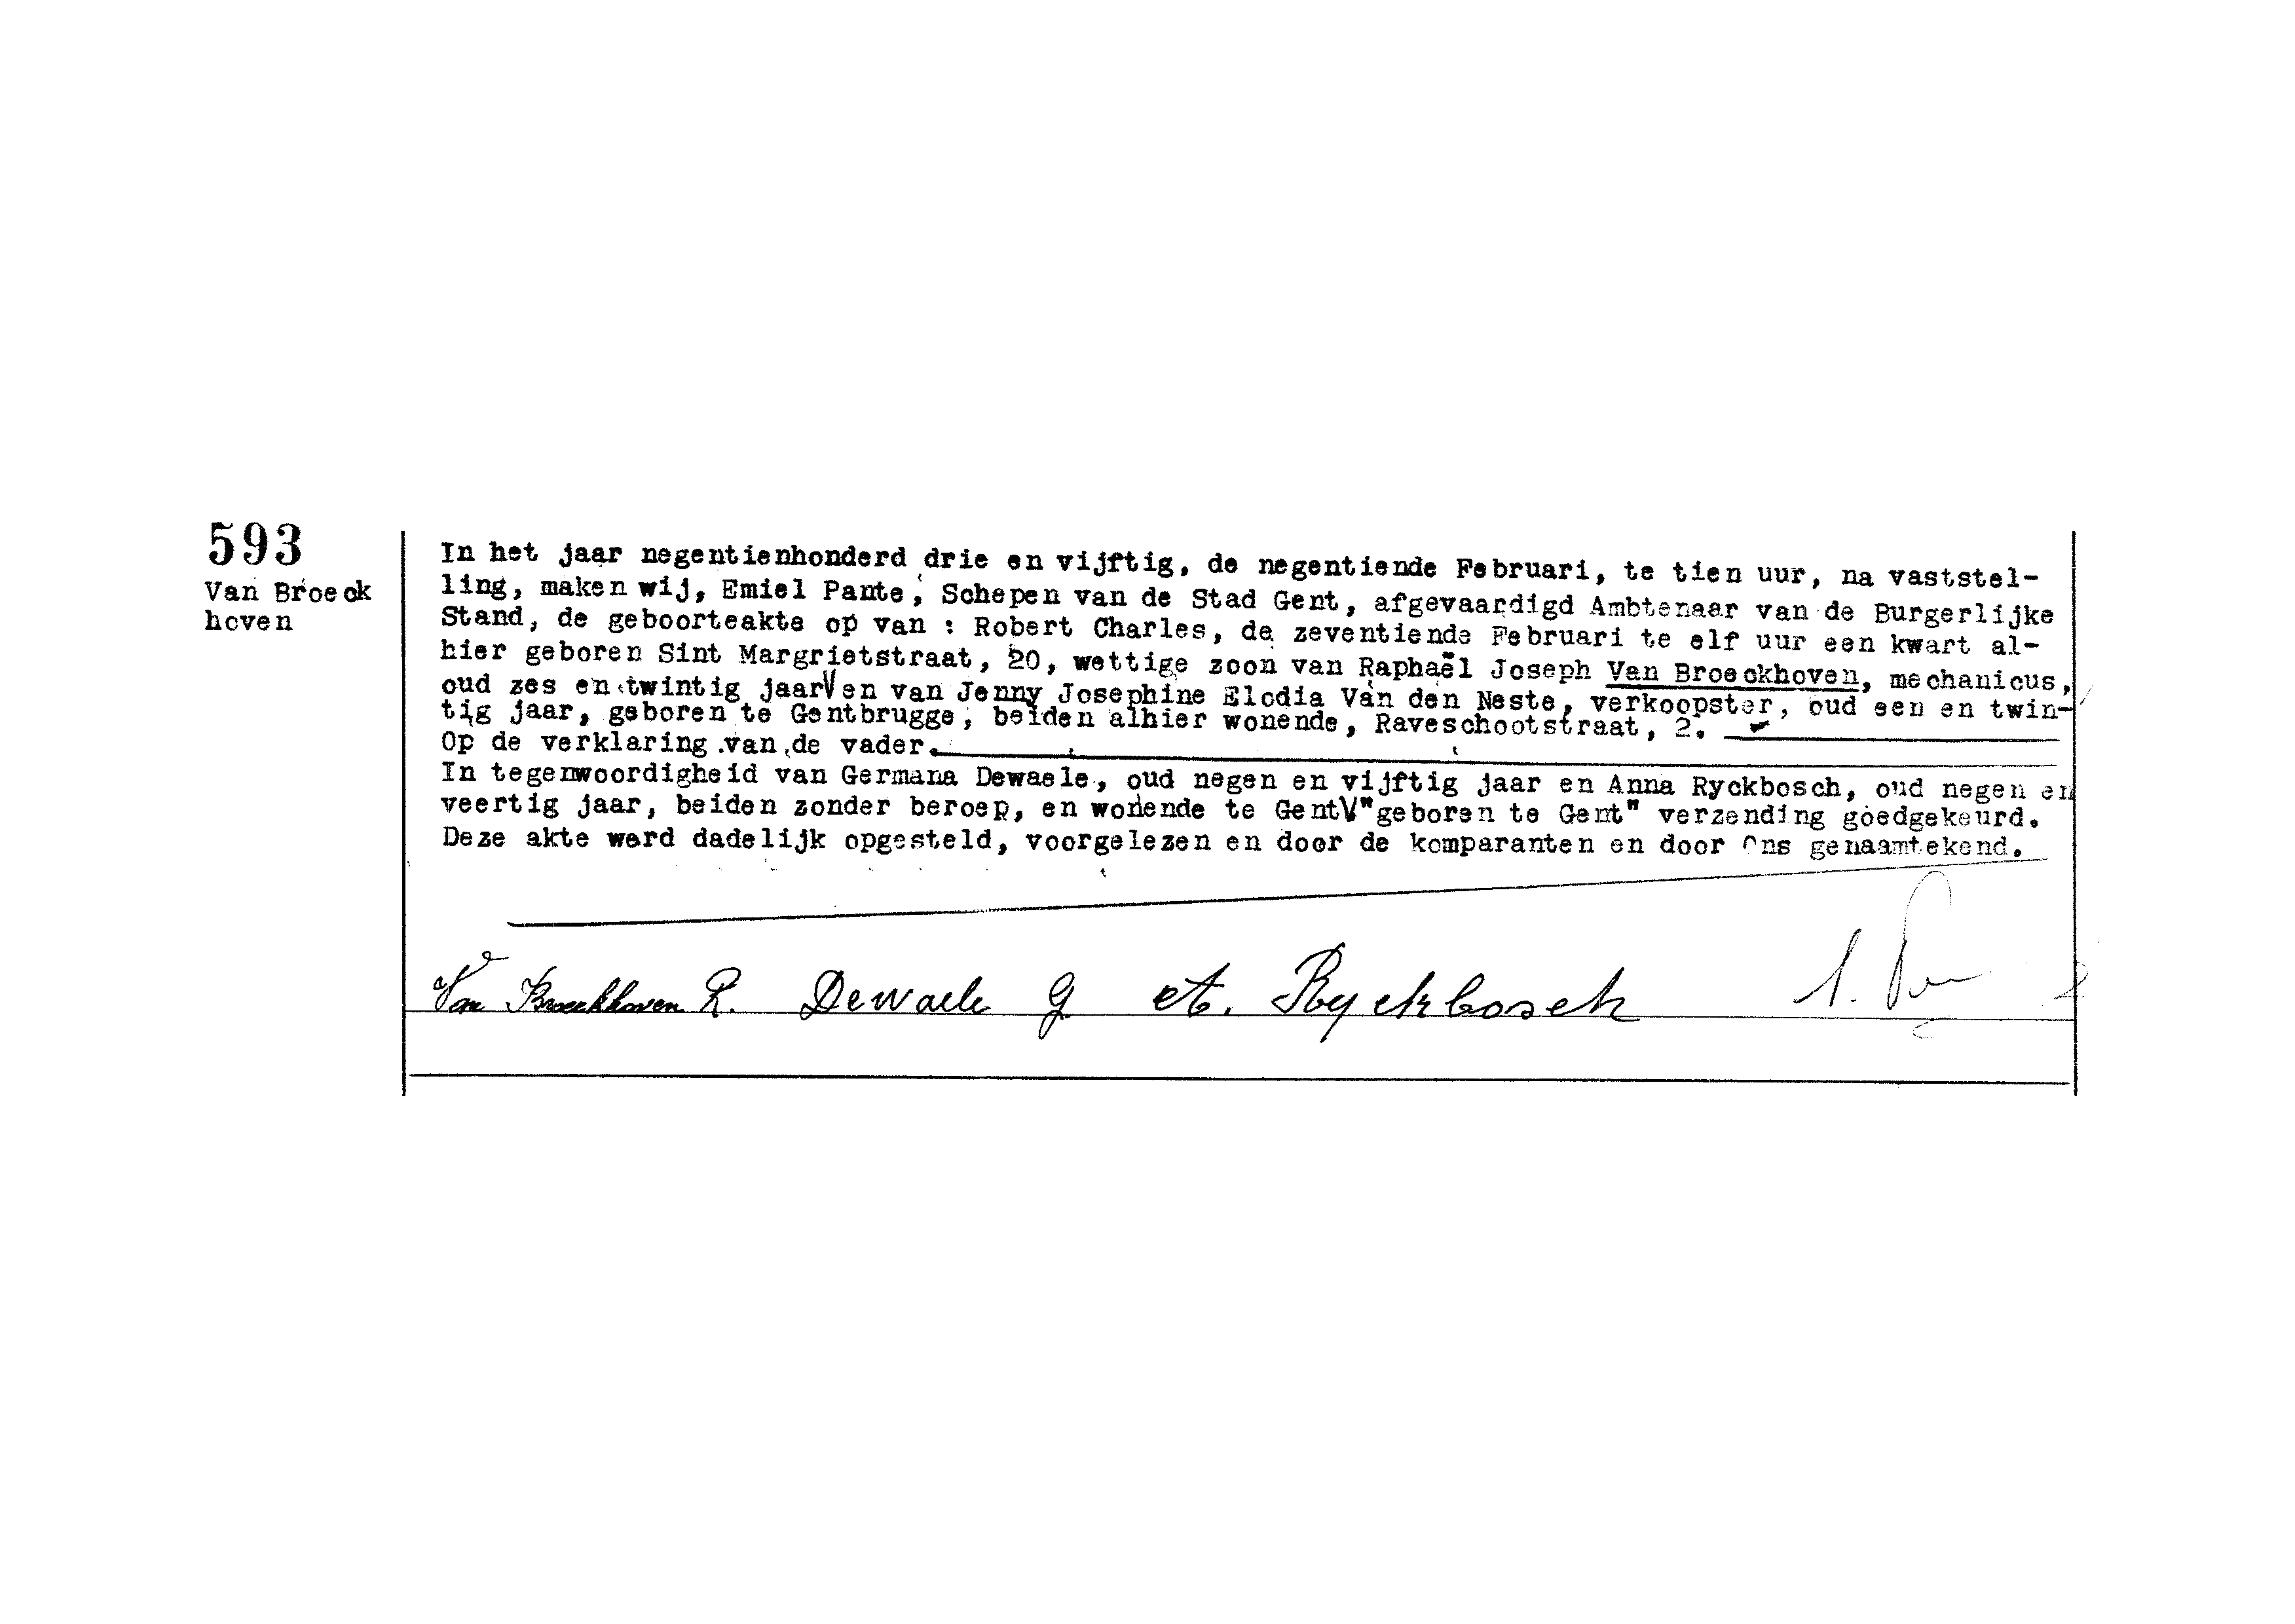 593
Van Broeck
hoven
In het jaar negentienhonderd drie en vijftig, de negentiende Februari, te tien uur, na vaststel-
ling, maken wij, Emiel Pante, Schepen van de Stad Gent, afgevaardigd Ambtenaar van de Burgerlijke
Stand, de geboorteakte op van : Robert Charles, de zeventiende Februari te elf uur een kwart al-
hier geboren Sint Margrietstraat, 20, wettige zoon van Raphaël Joseph Van Broeckhoven, mechanicus,
oud zes en twintig jaar V en van Jenny Josephine Elodia Van den Neste, verkoopster, oud een en twin-
tig jaar, geboren te Gentbrugge, beiden alhier wonende, Raveschootstraat, 2.
Op de verklaring van de vader.
In tegenwoordigheid van Germana Dewaele, oud negen en vijftig jaar en Anna Ryckbosch, oud negen en
veertig jaar, beiden zonder beroep, en wonende te Gent V "geboren te Gent" verzending goedgekeurd.
Deze akte werd dadelijk opgesteld, voorgelezen en door de komparanten en door Ons genaamtekend.
Van Broeckhoven R. Dewaele G A. Ryckbosch